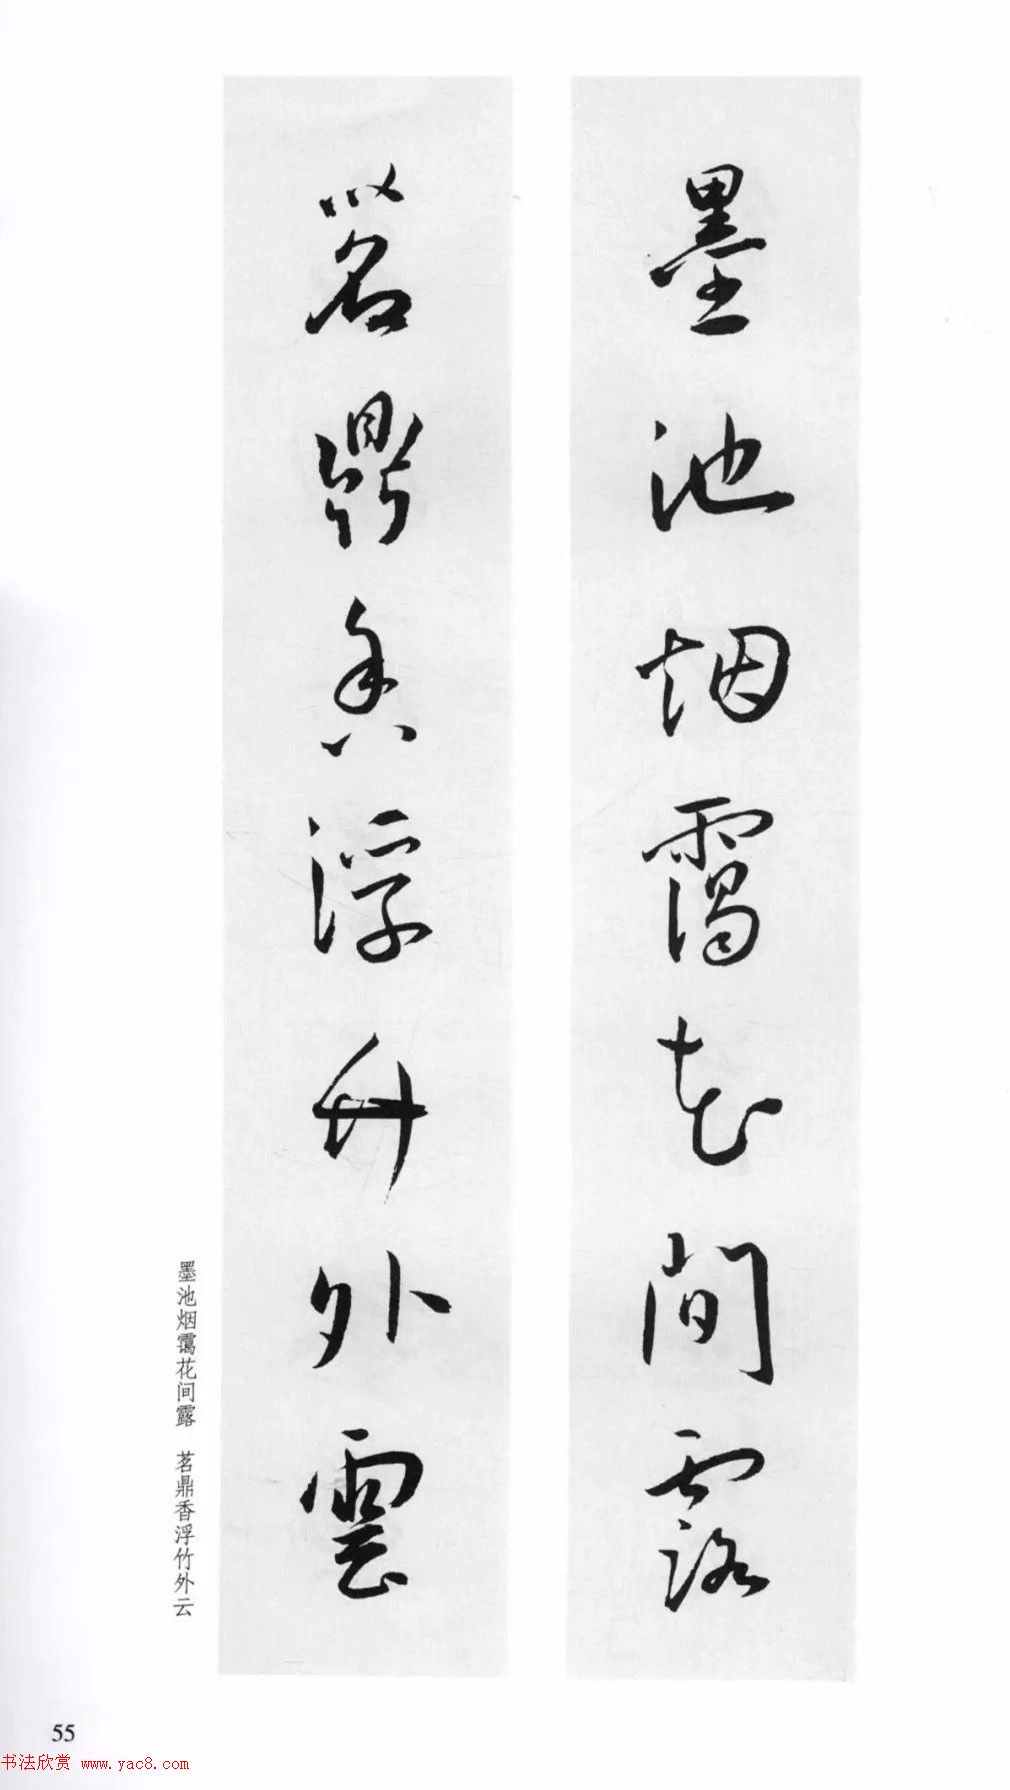 墨池烟靄花間露
茗鼎香浮竹外雲
墨池烟霭花间露　茗鼎香浮竹外云
55
书法欣赏 www.yac8.com